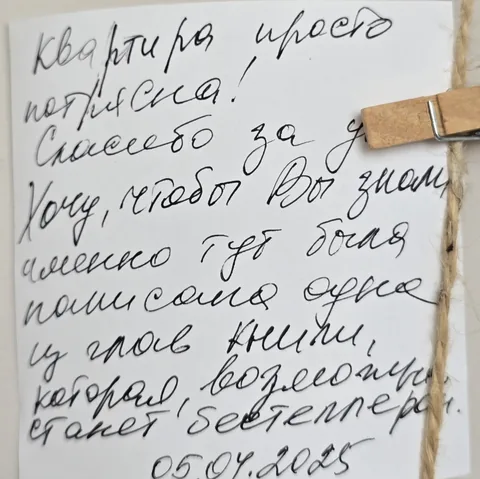 Квартира просто
потрясна!
Спасибо за у
Хочу, чтобы Вы знали,
именно тут была
написана одна
из глав книги,
которая, возможно,
станет бестеллером.
05.04.2025